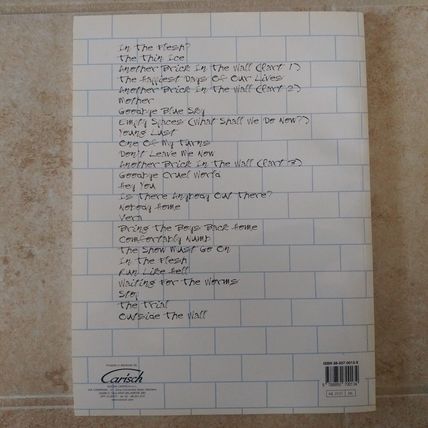 In The Flesh?
The Thin Ice
Another Brick In The Wall (Part 1)
The Happiest Days Of Our Lives
Another Brick In The Wall (Part 2)
Mother
Goodbye Blue Sky
Empty Spaces (What Shall We Do Now?)
Young Lust
One Of My Turns
Don't Leave Me Now
Another Brick In The Wall (Part 3)
Goodbye Cruel World
Hey You
Is There Anybody Out There?
Nobody Home
Vera
Bring The Boys Back Home
Comfortably Numb
The Show Must Go On
In The Flesh
Run Like Hell
Waiting For The Worms
Stop
The Trial
Outside The Wall
Carisch